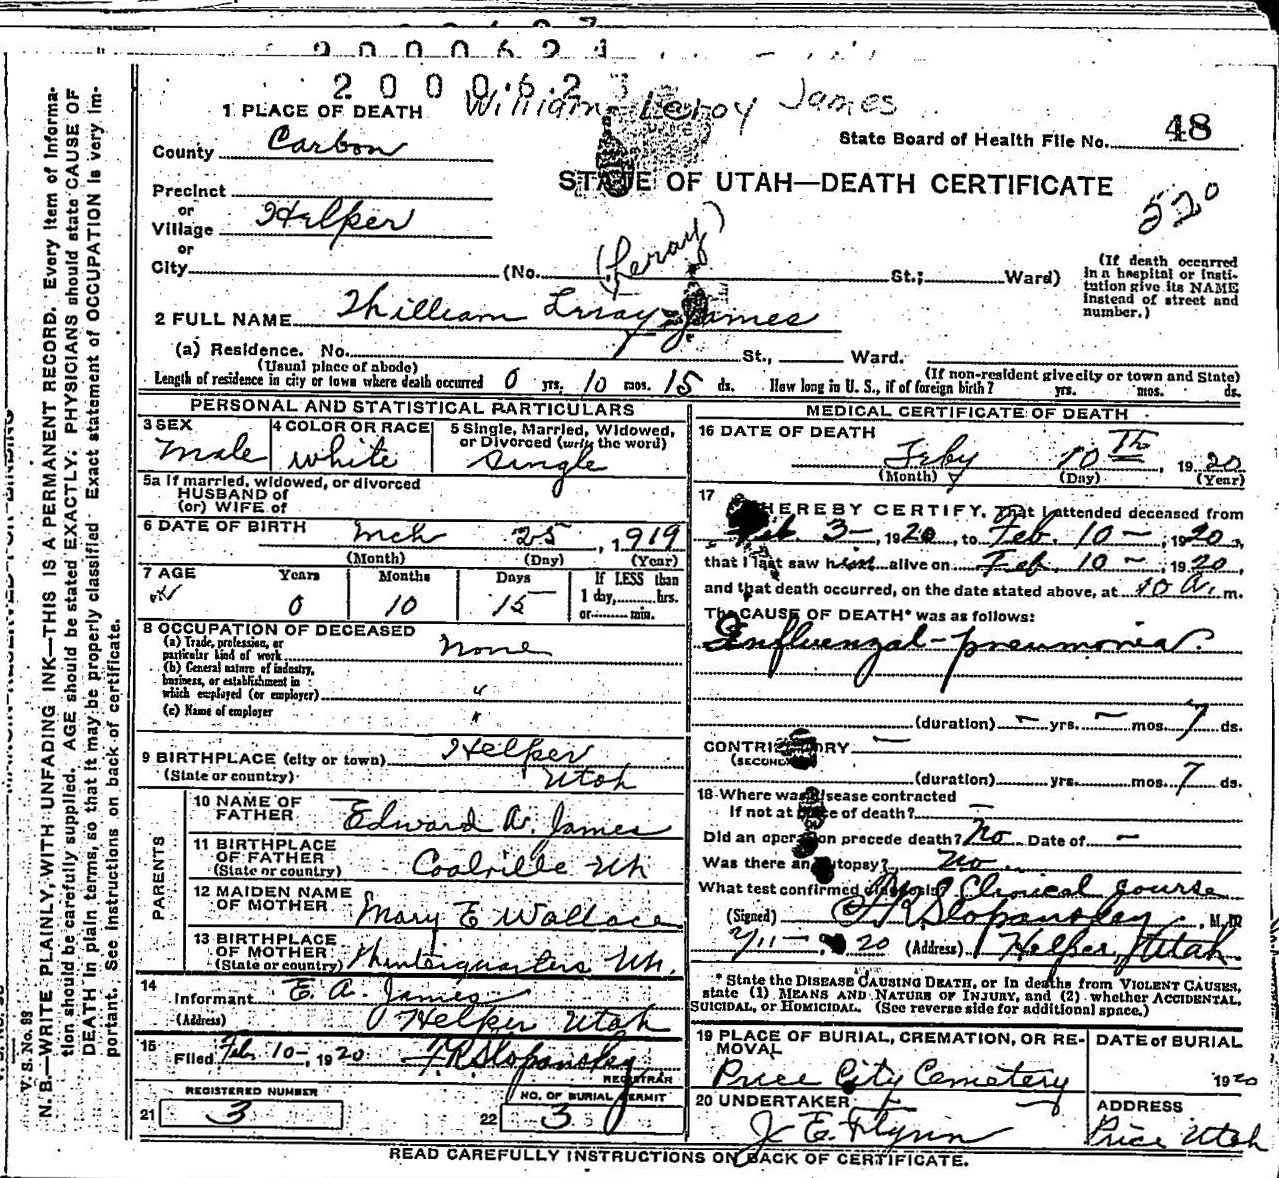 2 0 0 0 6 2
William Leroy James
1 PLACE OF DEATH
State Board of Health File No. 48
County Carbon
STATE OF UTAH—DEATH CERTIFICATE
520
Precinct
or
Village Helper
or
City (No. (Leroy) St.; Ward)
(If death occurred in a hospital or insti-
tution give its NAME
instead of street and
number.)
2 FULL NAME William Leroy James
(a) Residence. No. St., Ward.
(Usual place of abode)
(If non-resident give city or town and State)
Length of residence in city or town where death occurred 0 yrs. 10 mos. 15 ds. How long in U. S., if of foreign birth? yrs. mos. ds.
PERSONAL AND STATISTICAL PARTICULARS
3 SEX
Male
4 COLOR OR RACE
white
5 Single, Married, Widowed,
or Divorced (write the word)
single
5a If married, widowed, or divorced
HUSBAND of
(or) WIFE of
6 DATE OF BIRTH
Mch 25, 1919
(Month) (Day) (Year)
7 AGE
Years Months Days
0 10 15
If LESS than
1 day, hrs.
or min.
8 OCCUPATION OF DECEASED
(a) Trade, profession, or
particular kind of work None
(b) General nature of industry,
business, or establishment in
which employed (or employer) "
(c) Name of employer "
9 BIRTHPLACE (city or town) Helper
(State or country) Utah
PARENTS
10 NAME OF
FATHER Edward A. James
11 BIRTHPLACE
OF FATHER
(State or country) Coalville Uh
12 MAIDEN NAME
OF MOTHER Mary E Wallace
13 BIRTHPLACE
OF MOTHER
(State or country) Winterquarters Uh.
14
Informant E. A. James
(Address) Helper Utah
15
Filed Feb 10-, 1920 F R Slopansky
REGISTRAR
REGISTERED NUMBER
21 3
NO. OF BURIAL PERMIT
22 3
MEDICAL CERTIFICATE OF DEATH
16 DATE OF DEATH
Feby 10th, 1920
(Month) (Day) (Year)
17
I HEREBY CERTIFY, That I attended deceased from
Feb. 3-, 1920, to Feb. 10-, 1920,
that I last saw him alive on Feb. 10-, 1920,
and that death occurred, on the date stated above, at 10 A. m.
The CAUSE OF DEATH* was as follows:
Influenzal-pneumonia.
(duration) - yrs. - mos. 7 ds.
CONTRIBUTORY -
(SECONDARY)
(duration) yrs. mos. 7 ds.
18 Where was disease contracted
If not at place of death? -
Did an operation precede death? No Date of -
Was there an autopsy? No
What test confirmed diagnosis? Clinical course
(Signed) F R Slopansky, M. D.
2/11-, 1920 (Address) Helper, Utah
* State the DISEASE CAUSING DEATH, or in deaths from VIOLENT CAUSES,
state (1) MEANS AND NATURE OF INJURY, and (2) whether ACCIDENTAL,
SUICIDAL, or HOMICIDAL. (See reverse side for additional space.)
19 PLACE OF BURIAL, CREMATION, OR RE-
MOVAL
Price City Cemetery
DATE of BURIAL
1920
20 UNDERTAKER
J. E. Flynn
ADDRESS
Price Utah
READ CAREFULLY INSTRUCTIONS ON BACK OF CERTIFICATE.
V. S. No. 88
N. B.—WRITE PLAINLY, WITH UNFADING INK—THIS IS A PERMANENT RECORD. Every item of informa-
tion should be carefully supplied. AGE should be stated EXACTLY. PHYSICIANS should state CAUSE OF
DEATH in plain terms, so that it may be properly classified. Exact statement of OCCUPATION is very im-
portant. See instructions on back of certificate.